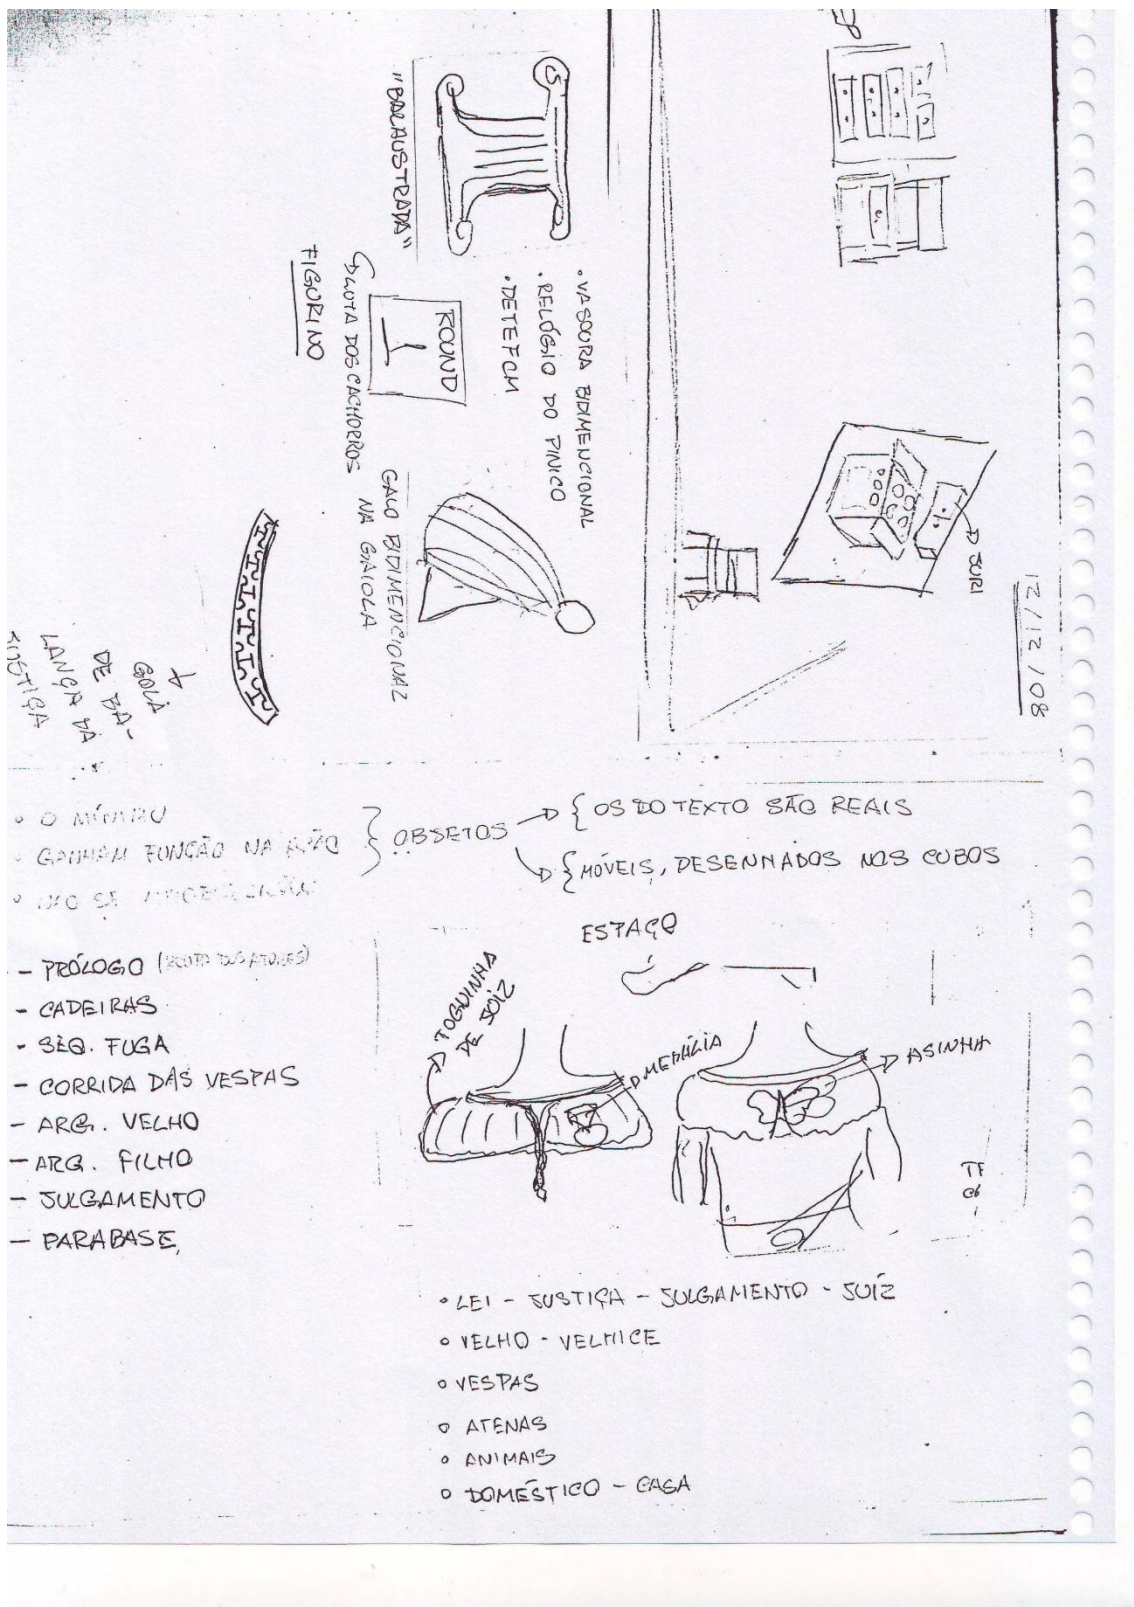 12/12/08
JURI
• VASOURA BIDIMENCIONAL
• RELÓGIO DO PINICO
• DETEFOM
"BALAUSTRADA"
ROUND
1
GALO BIDIMENCIONAL
LUTA DOS CACHORROS NA GAIOLA
FIGURINO
GOLA
DE BA-
LANÇA DA
JUSTIÇA
• O MÍNIMO
• GANHAM FUNÇÃO NA AÇÃO
• NÃO SE
OBJETOS
OS DO TEXTO SÃO REAIS
MÓVEIS, DESENHADOS NOS CUBOS
- PRÓLOGO
- CADEIRAS
- SEQ. FUGA
- CORRIDA DAS VESPAS
- ARG. VELHO
- ARG. FILHO
- JULGAMENTO
- PARABASE
ESPAÇO
TOGUINHA
DE JUÍZ
MEDALIA
ASINHA
• LEI - JUSTIÇA - JULGAMENTO - JUÍZ
• VELHO - VELHICE
• VESPAS
• ATENAS
• ANIMAIS
• DOMÉSTICO - CASA